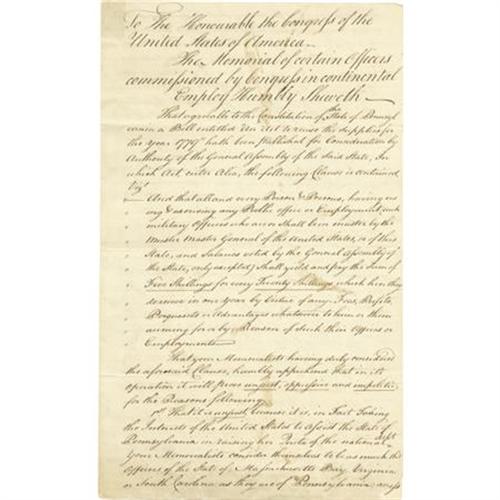 To The Honourable the Congress of the
United States of America —
The Memorial of certain Officers
commissioned by Congress in continental
Employ Humbly Sheweth —
That agreeable to the Constitution of the State of Pennsyl
vania a Bill entitled An Act to raise the supplies for
the Year 1779 hath been Published for Consideration by
Authority of the General Assembly of the said State, In
which Act, inter Alia, the following Clause is contained
Vizt
And that all and every Person & Persons, having us
ing & exercising any Public office or Employment, such
military Officers who are or Shall be in muster by the
Muster Master General of the United States, or of this
State, and Salaries voted by the General Assembly of
the State, only excepted) Shall yield and pay the Sum of
Five Shillings for every Twenty Shillings which he or they
receive in one year by Virtue of any Fees, Profits,
Perquisits or Advantages whatsoever to him or them
accruing for or by Reason of such their Offices or
Employments —
That your Memorialists having duly considered
the aforesaid Clause, humbly apprehend that in its
operation it will prove unjust, oppressive and impolitic,
for the Reasons following
1st That it is unjust, because it is, in Fact Taking
the Interests of the United States to assist the State of
Pennsylvania in raising her Quota of the national Debt
Your Memorialists consider themselves to be as much the
Officers of the State of Massachusetts Bay, Virginia
or South Carolina as they are of Pennsylvania